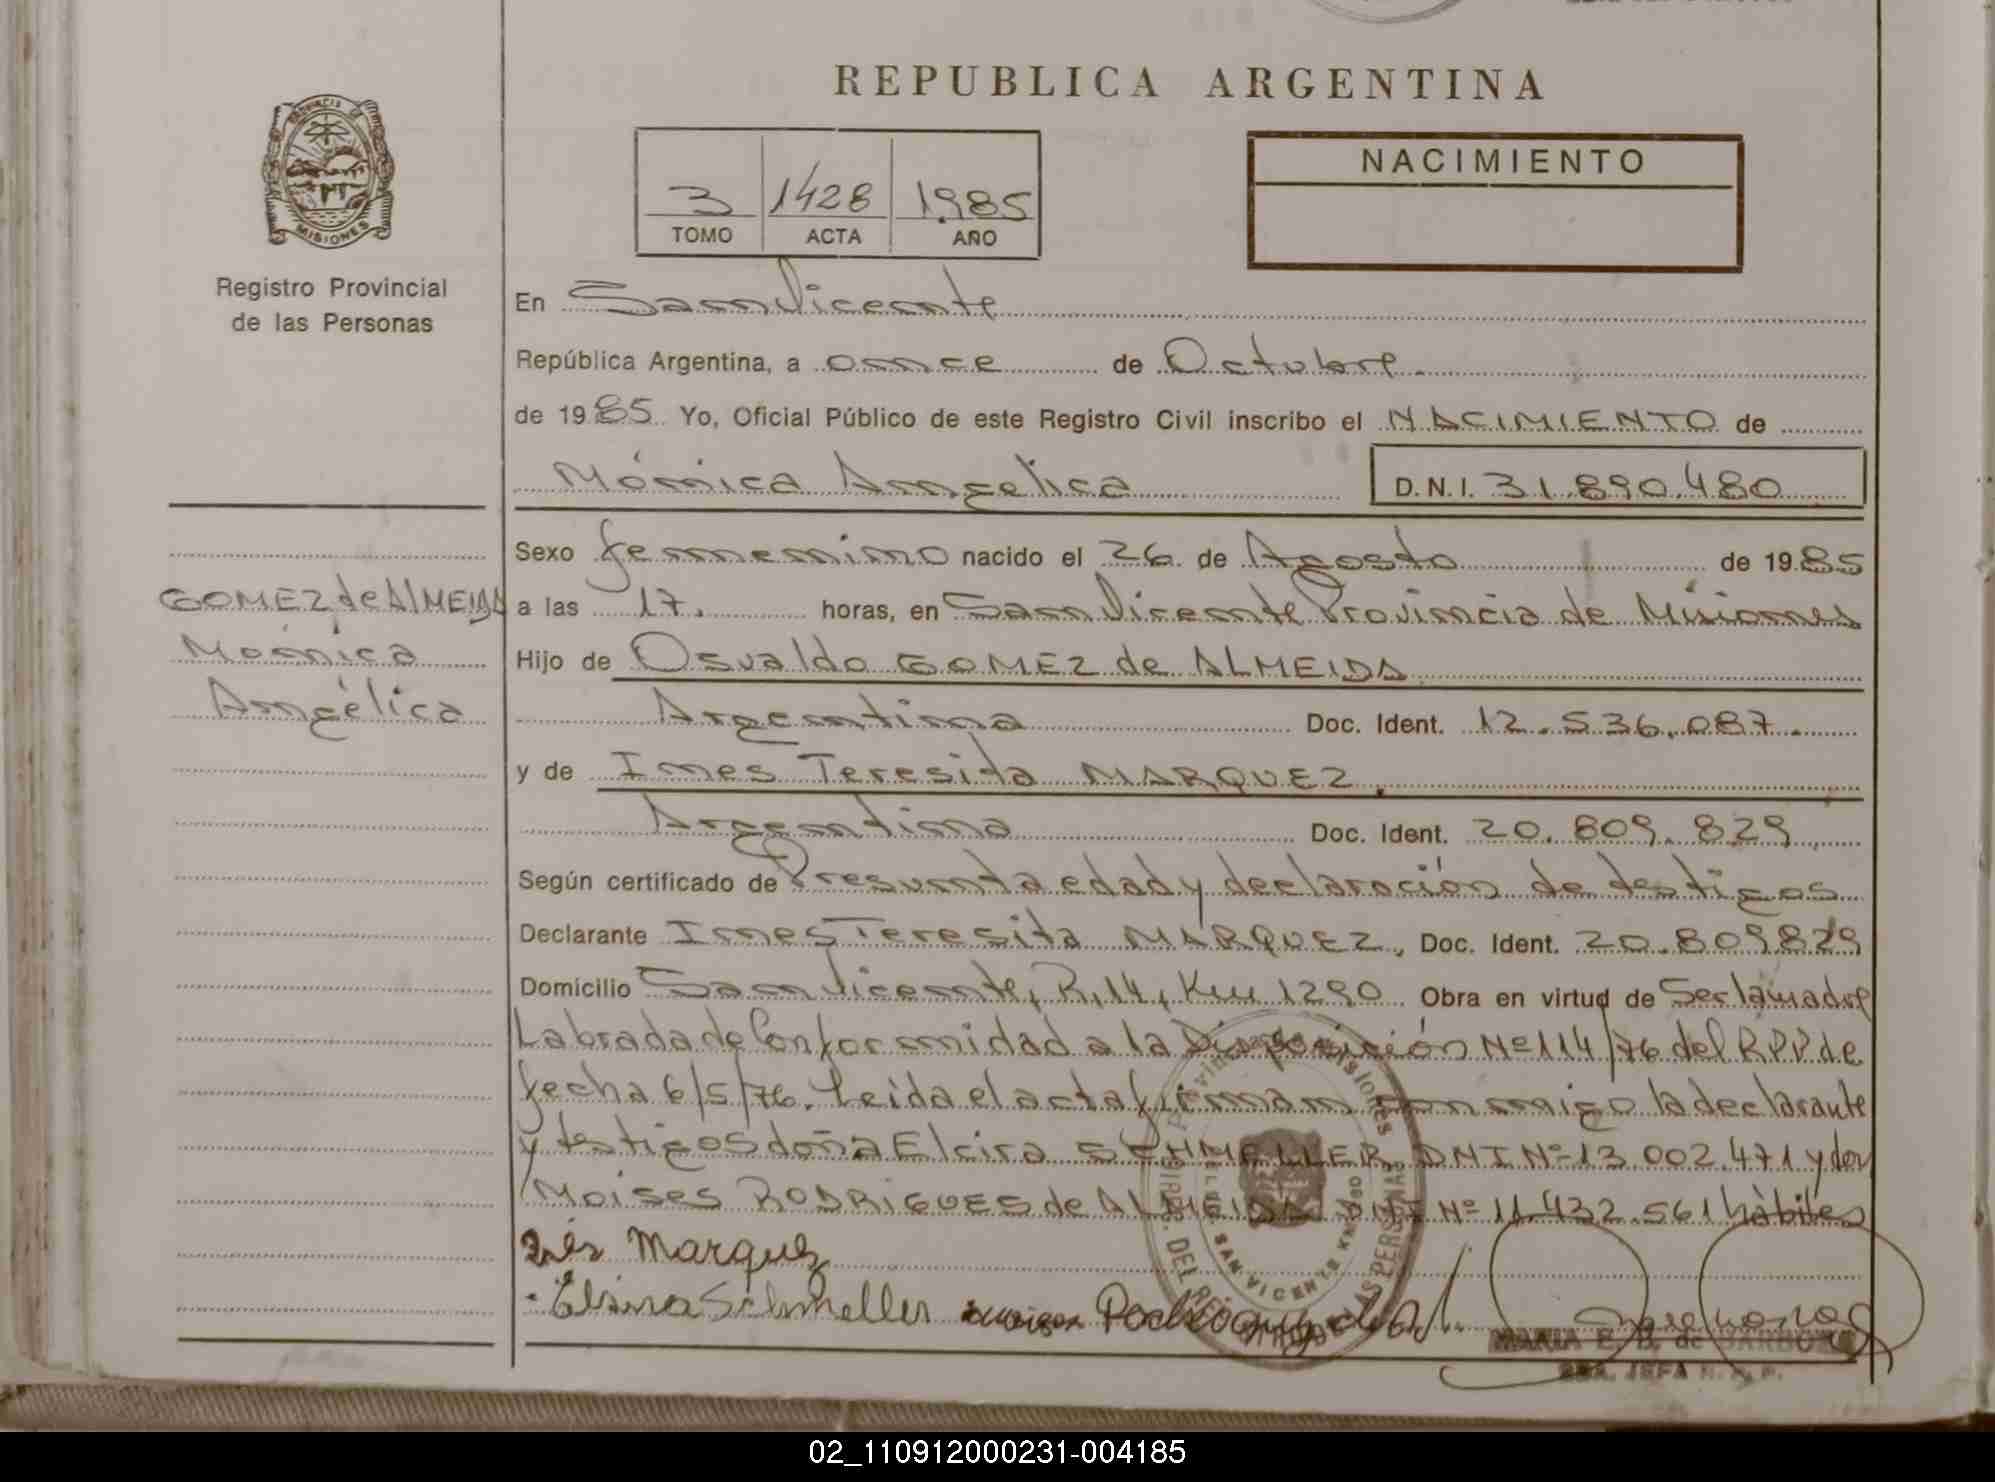 REPUBLICA ARGENTINA
PROVINCIA
MISIONES
Registro Provincial
de las Personas
3 1428 1985
TOMO ACTA AÑO
NACIMIENTO
En San Vicente
República Argentina, a once de Octubre.
de 1985 Yo, Oficial Público de este Registro Civil inscribo el NACIMIENTO de
Mónica Angelica D.N.I. 31.890.480
GOMEZ de ALMEIDA
Mónica
Angélica
Sexo femenino nacido el 26 de Agosto de 1985
a las 17. horas, en San Vicente Provincia de Misiones
Hijo de Osvaldo GOMEZ de ALMEIDA
Argentina Doc. Ident. 12.536.087.
y de Ines Teresita MARQUEZ.
Argentina Doc. Ident. 20.809.829
Según certificado de Presunta edad y declaración de testigos
Declarante Ines Teresita MARQUEZ, Doc. Ident. 20.809829
Domicilio San Vicente, R.14, Km 1290 Obra en virtud de Ser la madre
Labrada de Conformidad a la Disposición Nº 114/76 del R.P.P. de
fecha 6/5/76. Leida el acta firman conmigo la declarante
y testigos doña Elcira SCHMELLER DNI Nº 13.002.471 y don
Moises RODRIGUES de ALMEIDA DNI Nº 11.432.561 hàbiles
Marquez
Elsira Schmeller
MARIA E. B. de
JEFA R. P. P.
SAN VICENTE
02_110912000231-004185